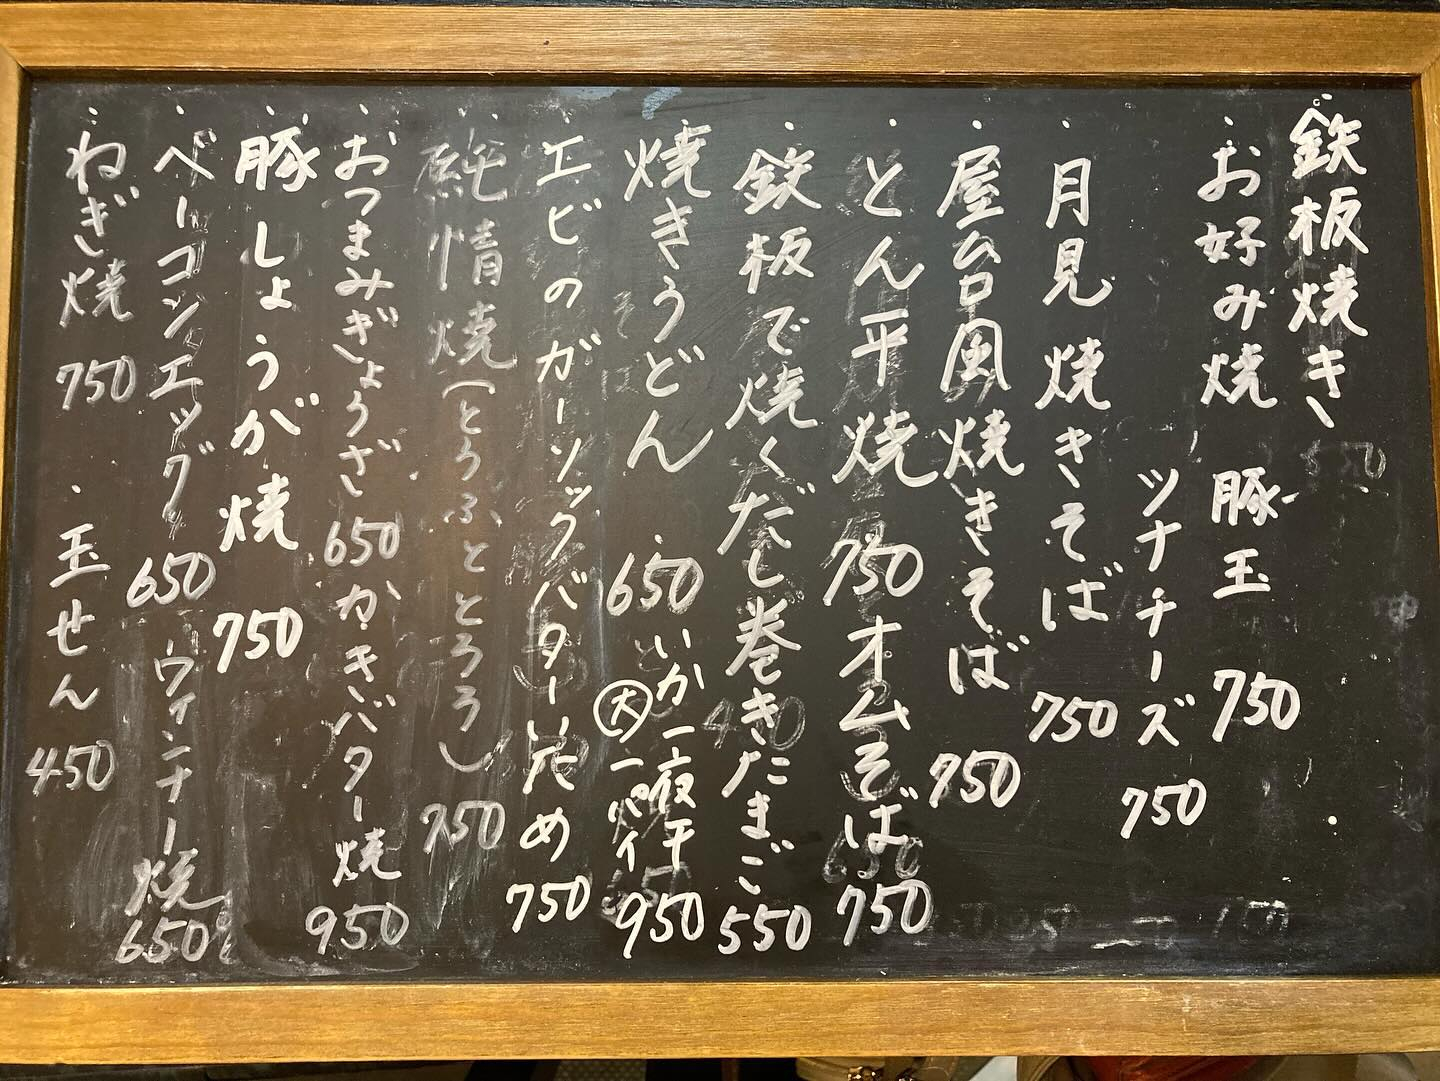 鉄板焼き
お好み焼 豚玉 750
ツナチーズ 750
月見焼きそば 750
屋台風焼きそば 750
とん平焼 750
オムそば 750
鉄板で焼くだし巻きたまご 550
焼きうどん 650
いか一夜干
大一パイ 950
エビのガーリックバターいため 750
純情焼(とうふととろろ) 750
おつまみぎょうざ 650
かきバター焼 950
豚しょうが焼 750
ベーコンエッグ 650
ウィンナー焼 650
ねぎ焼 750
玉せん 450